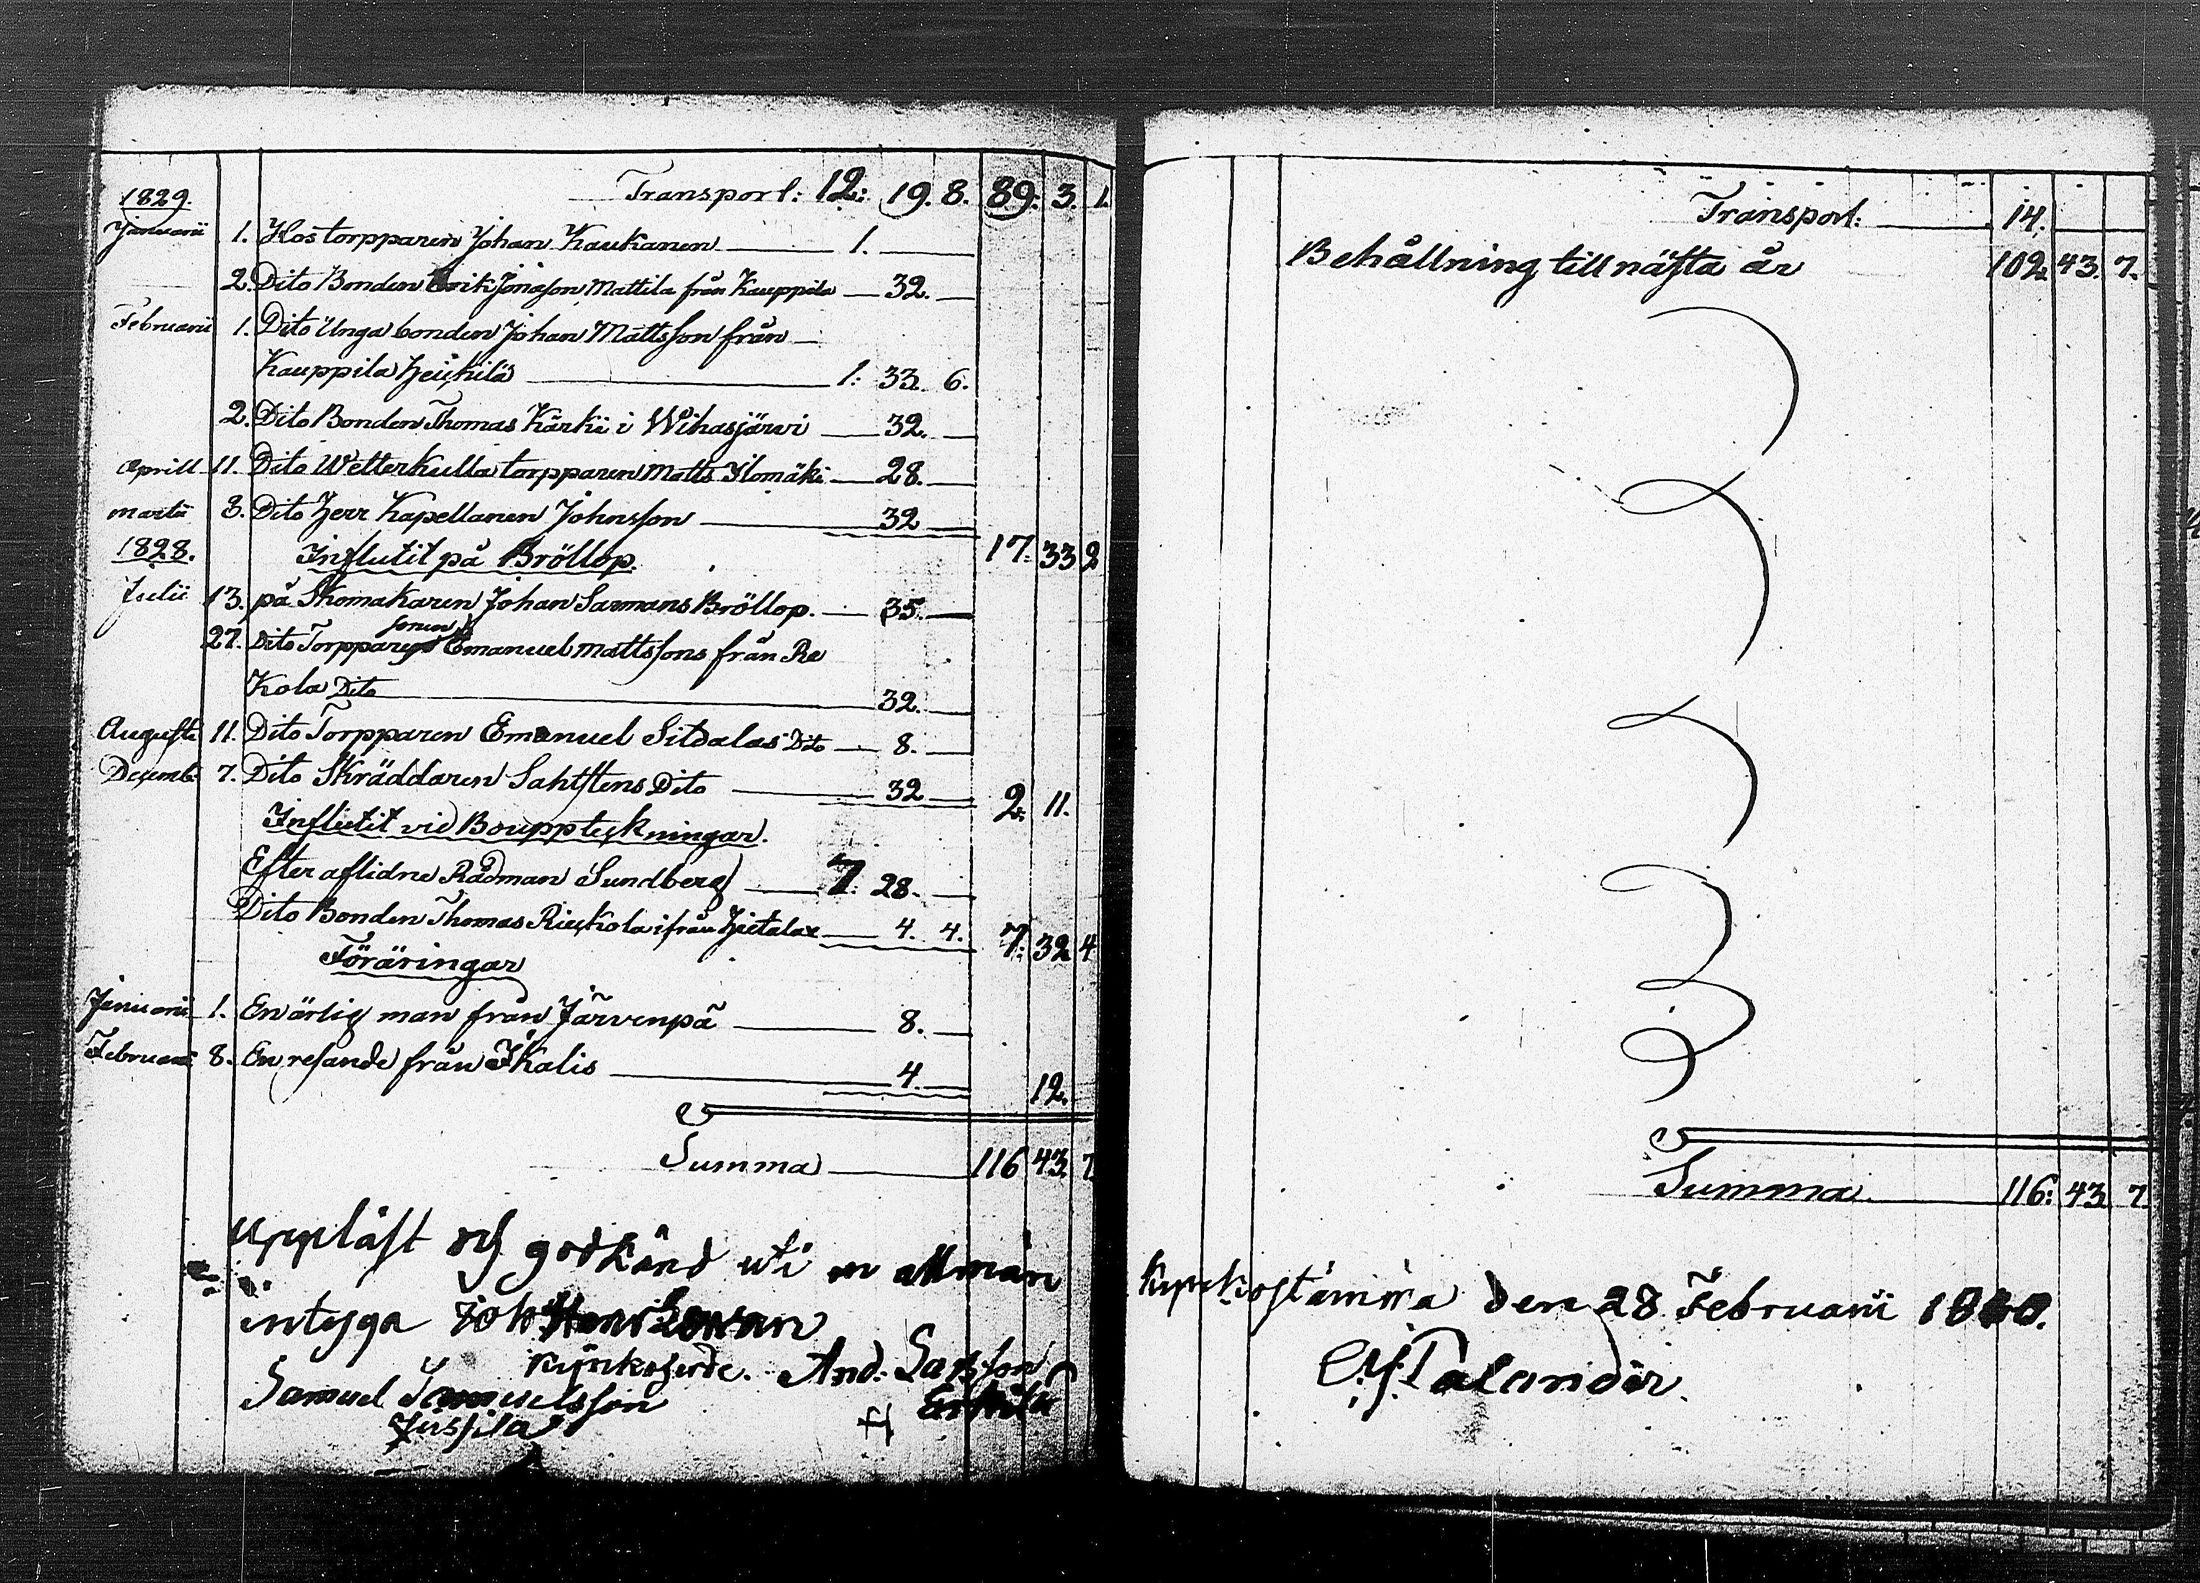 Transport: 12: 19. 8. 89. 3. 1.
1829.
Januarii 1. Hos torpparen Johan Kaukanen 1.
2. Dito Bonden Erik Jönasson Mattila från Kauppila 32.
Februarii 1. Dito Unga bonden Johan Mattsson från
Kauppila Heikilä 1: 33. 6.
2. Dito Bonden Thomas Kärki i Wihasjärvi 32.
Aprill 11. Dito Wetterkulla torpparen Matts Ilomäki 28.
Martii 8. Dito Herr Kapellanen Johnsson 32 17: 33 2
1828. Influtit på Bröllop.
Julii 13. på Skomakaren Johan Sarmans Bröllop. 35.
27. Dito Torppare sonen Emanuel Mattssons från Re
Kola Dito 32.
Augusti 11. Dito Torpparen Emanuel Sitdalas Dito 8.
Decemb. 7. Dito Skräddaren Sahlstens Dito 32 2: 11.
Influtit vid Bouppteckningar.
Efter aflidne Rådman Sundberg 7. 28.
Dito Bonden Thomas Rieskola ifrån Hietalax 4. 4. 7: 32 4
Föräringar
Januarii 1. En ärlig man från Järvenpä 8.
Februarii 8. En resande från Ikalis 4. 12.
Summa 116 43. 7
Uppläst och godkänd uti en allmän
intyga Joh
Kyrkoherde. And:
Samuel Samuelsson
Jussila
Transport: 14.
Behållning till nästa år 102. 43. 7.
Summa 116: 43 7
Kyrkostämma den 28 Februarii
Palander.